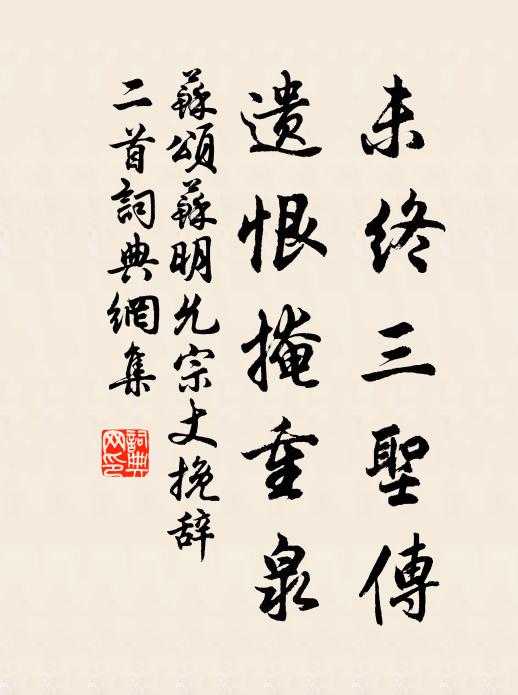 未终三聖傳
遗恨掩重泉
蘇頌蘇明允宗丈挽辞
二首詞典網集
詞典網印